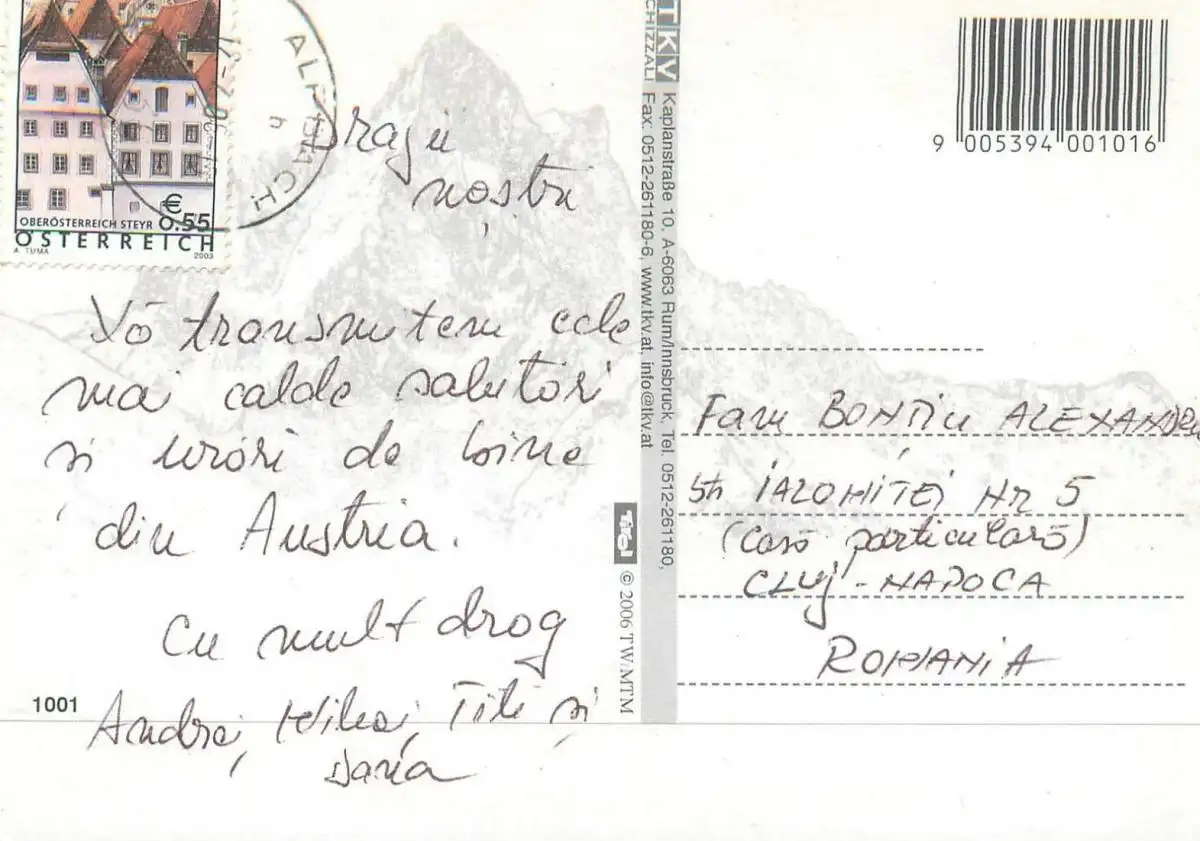 €
0.55
OBERÖSTERREICH STEYR
ÖSTERREICH
A. TUMA
2003
ALPBACH
h
Dragii
noștri
Vă transmitem cele
mai calde salutări
și urări de bine
din Austria.
Cu mult drag
Andrei, Mihai, Titi și
Daria
1001
TKV
CHIZZALI
Kaplanstraße 10, A-6063 Rum/Innsbruck, Tel. 0512-261180,
Fax: 0512-261180-6, www.tkv.at, info@tkv.at
Tirol
© 2006 TW/MTM
9 005394 001016
Fam BONȚIU ALEXANDRU
Str IALOMIȚEI Nr 5
(Casă particulară)
CLUJ-NAPOCA
ROMANIA